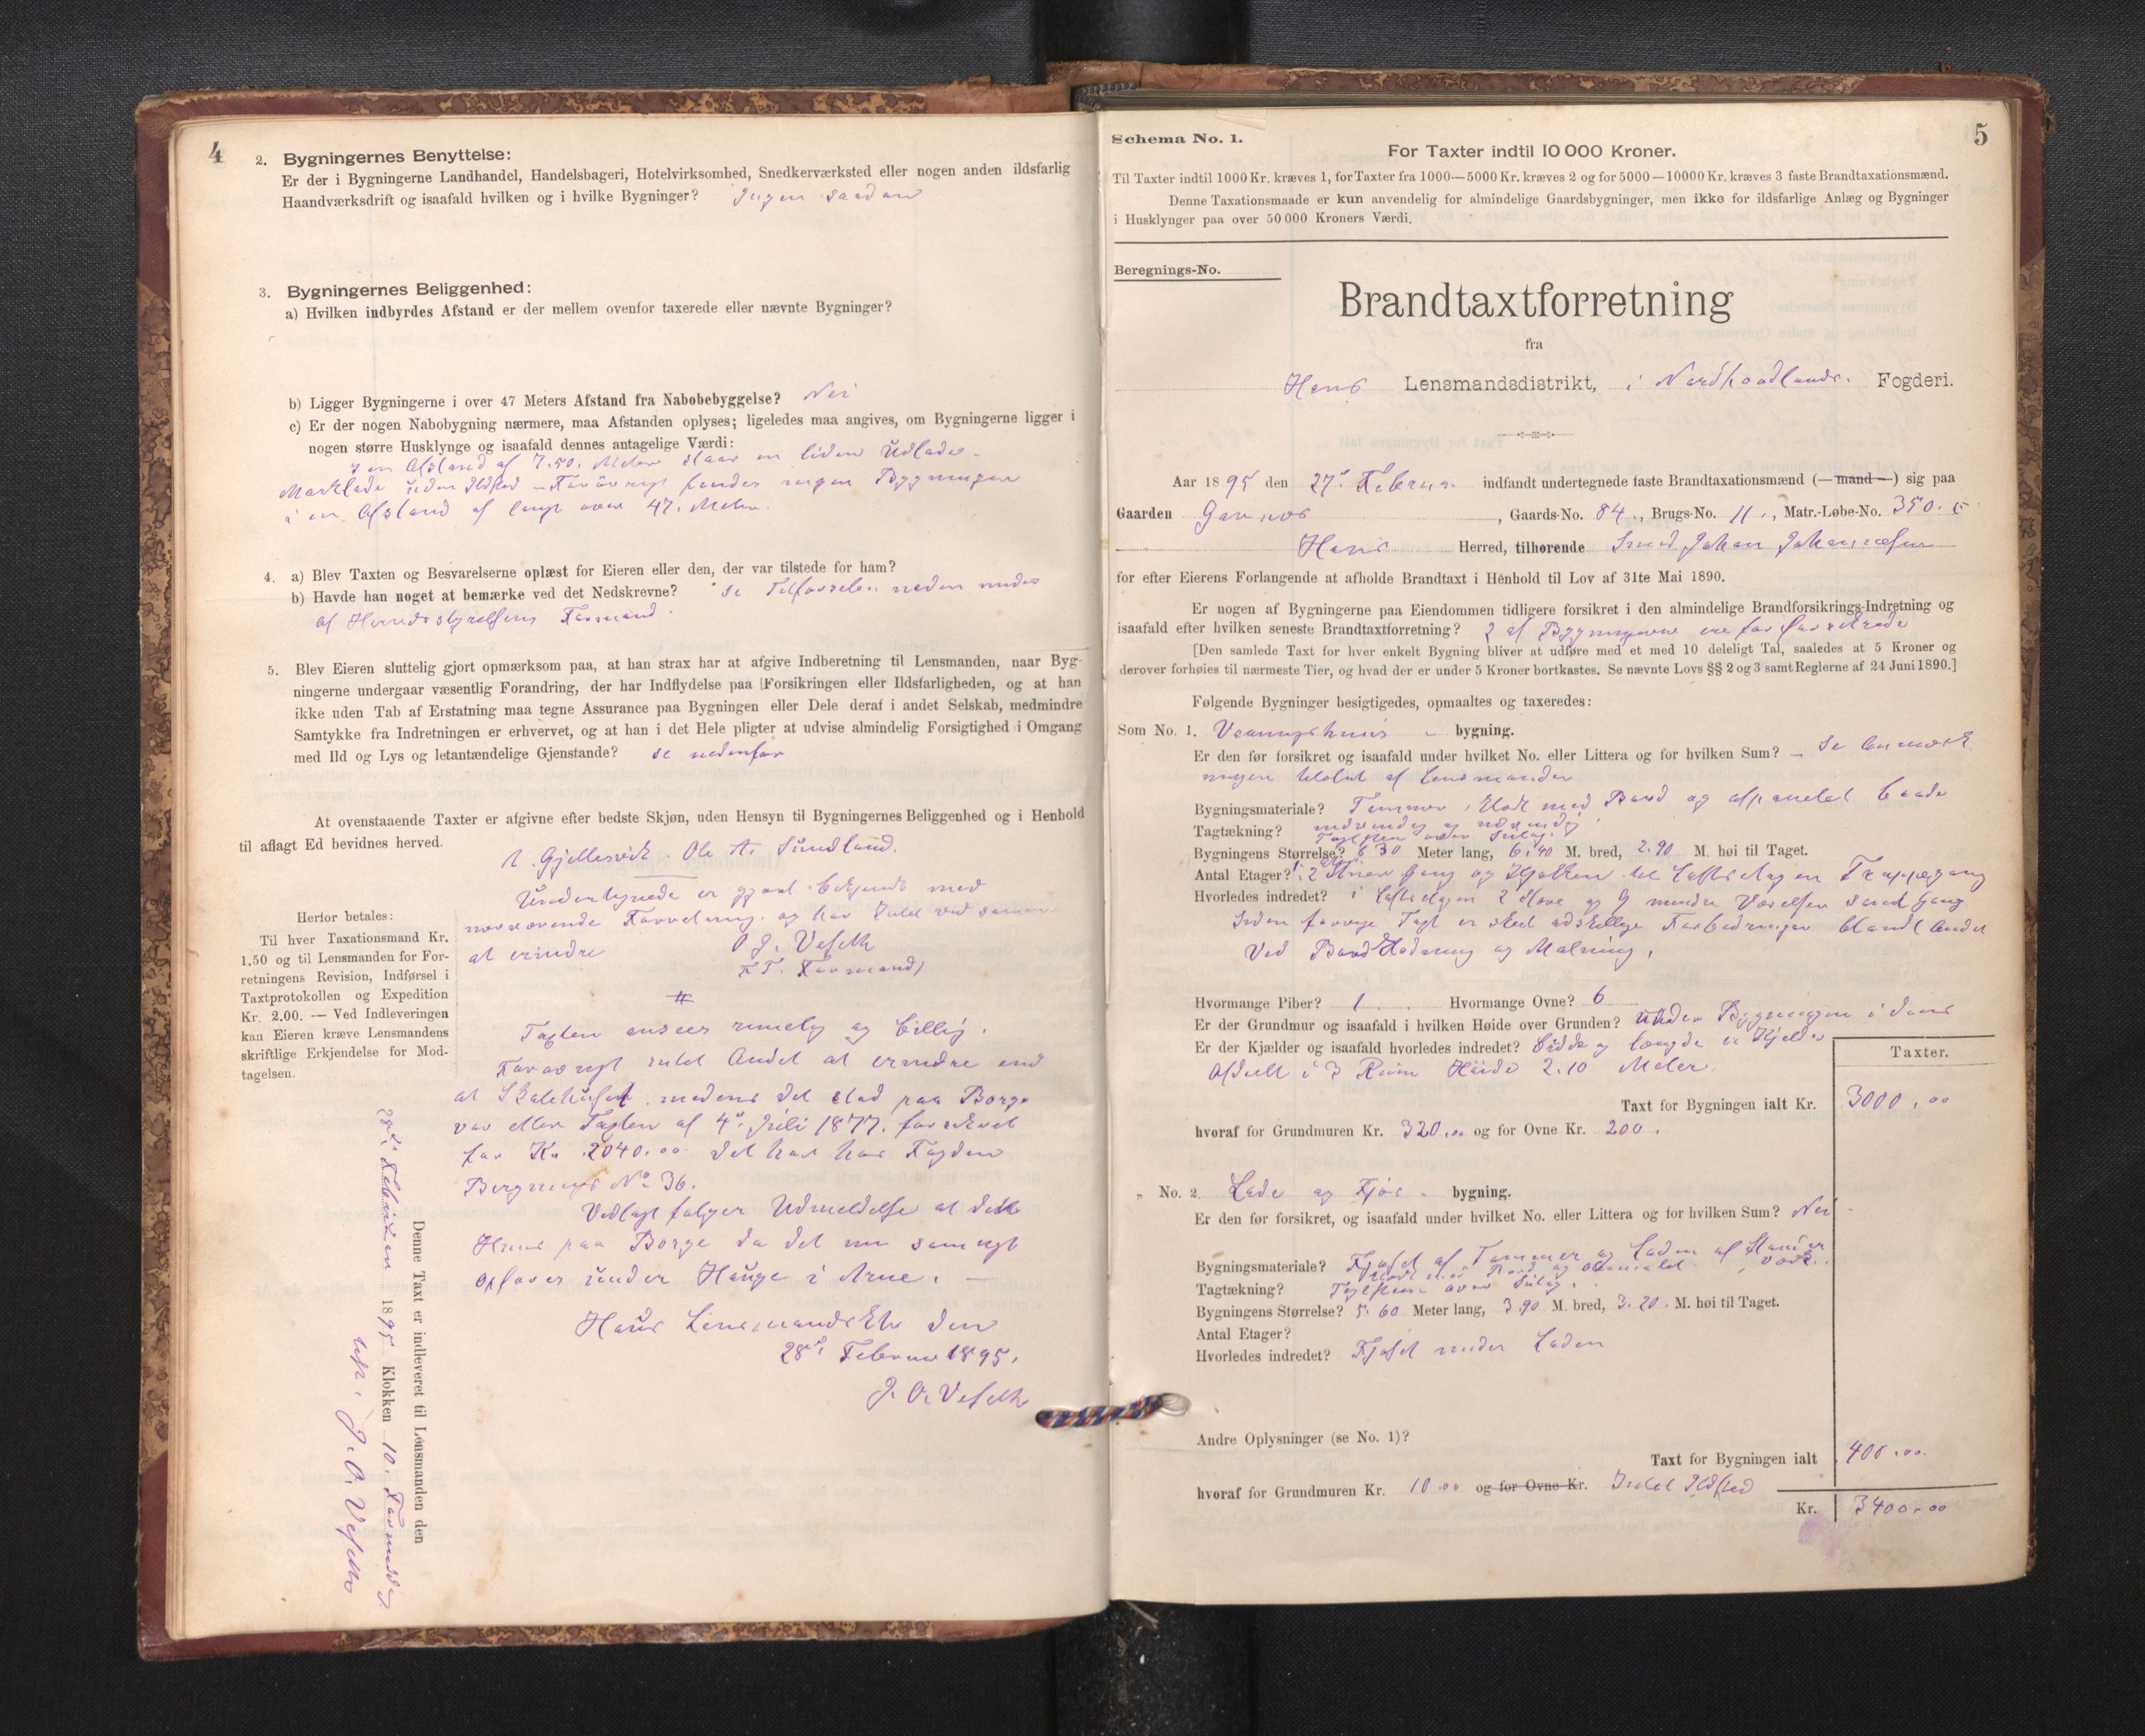 4
2. Bygningernes Benyttelse:
Er der i Bygningerne Landhandel, Handelsbageri, Hotelvirksomhed, Snedkerværksted eller nogen anden ildsfarlig
Haandværksdrift og isaafald hvilken og i hvilke Bygninger? Ingen saadan
3. Bygningernes Beliggenhed:
a) Hvilken indbyrdes Afstand er der mellem ovenfor taxerede eller nævnte Bygninger?
b) Ligger Bygningerne i over 47 Meters Afstand fra Nabobebyggelse? Nei
c) Er der nogen Nabobygning nærmere, maa Afstanden oplyses; ligeledes maa angives, om Bygningerne ligger i
nogen større Husklynge og isaafald dennes antagelige Værdi:
I en Afstand af 7.50. Meter staar en liden Udlade
Marklade uden Ildsted - Forøvrigt findes ingen Bygninger
i en Afstand af langt over 47. Meter.
4. a) Blev Taxten og Besvarelserne oplæst for Eieren eller den, der var tilstede for ham?
b) Havde han noget at bemærke ved det Nedskrevne? se Tilførselen neden
af Herredsstyrelsens Formand.
5. Blev Eieren sluttelig gjort opmærksom paa, at han strax har at afgive Indberetning til Lensmanden, naar Byg-
ningerne undergaar væsentlig Forandring, der har Indflydelse paa Forsikringen eller Ildsfarligheden, og at han
ikke uden Tab af Erstatning maa tegne Assurance paa Bygningen eller Dele deraf i andet Selskab, medmindre
Samtykke fra Indretningen er erhvervet, og at han i det Hele pligter at udvise almindelig Forsigtighed i Omgang
med Ild og Lys og letantændelige Gjenstande? se nedenfor
At ovenstaaende Taxter er afgivne efter bedste Skjøn, uden Hensyn til Bygningernes Beliggenhed og i Henhold
til aflagt Ed bevidnes herved.
Gjellesvik. Ole A. Sundland.
Undertegnede er gjort bekjendt med
nærværende Forretning og har Intet ved samme
at erindre
O J. Veseth
F.T. Formand)
Herfor betales:
Til hver Taxationsmand Kr.
1.50 og til Lensmanden for For-
retningens Revision, Indførsel i
Taxtprotokollen og Expedition
Kr. 2.00. — Ved Indleveringen
kan Eieren kræve Lensmandens
skriftlige Erkjendelse for Mod-
tagelsen.
#
Taxten ansees rimelig og billig.
Forøvrigt intet Andet at erindre end
at medens det stod paa Borge
var efter Taxten af 4de Juli 1877. forsikret
for Kr 2040.00 det har hos Fogden
Bergnings No. 36.
Vedlagt følger Udmeldelse af dette
Huus paa Borge da det nu som nyt
opføres under Hauge i Arne. —
Haus Lensmandsktr den
28de Februar 1895.
J. O. Veseth
Denne Taxt er indleveret til Lensmanden den
28de Februar 1895 Klokken 10. Formiddag
J. O. Veseth
5
Schema No. 1.
For Taxter indtil 10 000 Kroner.
Til Taxter indtil 1000 Kr. kræves 1, for Taxter fra 1000—5000 Kr. kræves 2 og for 5000—10000 Kr. kræves 3 faste Brandtaxationsmænd.
Denne Taxationsmaade er kun anvendelig for almindelige Gaardsbygninger, men ikke for ildsfarlige Anlæg og Bygninger
i Husklynger paa over 50 000 Kroners Værdi.
Beregnings-No.
Brandtaxtforretning
fra
Haus Lensmandsdistrikt, i Nordhordlands Fogderi.
Aar 1895 den 27de Februar indfandt undertegnede faste Brandtaxationsmænd (—mand—) sig paa
Gaarden Garnæs, Gaards-No. 84., Brugs-No. 11., Matr.-Løbe-No. 350.
Haus Herred, tilhørende Smed Johan Johannesen
for efter Eierens Forlangende at afholde Brandtaxt i Henhold til Lov af 31te Mai 1890.
Er nogen af Bygningerne paa Eiendommen tidligere forsikret i den almindelige Brandforsikrings-Indretning og
isaafald efter hvilken seneste Brandtaxtforretning? 2 af Bygningerne ere før forsikrede
[Den samlede Taxt for hver enkelt Bygning bliver at udføre med et med 10 deleligt Tal, saaledes at 5 Kroner og
derover forhøies til nærmeste Tier, og hvad der er under 5 Kroner bortkastes. Se nævnte Lovs §§ 2 og 3 samt Reglerne af 24 Juni 1890.]
Følgende Bygninger besigtigedes, opmaaltes og taxeredes:
Som No. 1. Vaaningshuus - bygning.
Er den før forsikret og isaafald under hvilket No. eller Littera og for hvilken Sum? — Se Anmærk
ningen af Lensmanden
Bygningsmateriale? Tømmer, klædt med Bord og afpanelet baade
indvendig og udvendig.
Tagtækning? Taglsten over Sutag.
Bygningens Størrelse? 8.30 Meter lang, 6.40 M. bred, 2.90 M. høi til Taget.
Antal Etager? 1. 2 Stuer Gang og Kjøkken til Loftsetagen Trappegang
Hvorledes indredet? i Loftsetagen 2 store og 9 mindre Værelser samt Gang
Siden forrige Taxt er sket adskillige Forbedringer blandt Andet
Ved Bordklædning og Malning.
Hvormange Piber? 1. Hvormange Ovne? 6
Er der Grundmur og isaafald i hvilken Høide over Grunden? Under Bygningen i dens
Er der Kjælder og isaafald hvorledes indredet? Bredde og længde er Kjelder
Afdelt i 3 Rum Høide 2.10 Meter.
Taxter.
Taxt for Bygningen ialt Kr. 3000.00
hvoraf for Grundmuren Kr. 320.00 og for Ovne Kr. 200.
„ No. 2. Lade og Fjøs - bygning.
Er den før forsikret, og isaafald under hvilket No. eller Littera og for hvilken Sum? Nei -
Bygningsmateriale? Fjøset af Tømmer og Laden af
Tagtækning? Taglsten over Sutag.
Bygningens Størrelse? 5.60 Meter lang, 3.90 M. bred, 3.20. M. høi til Taget.
Antal Etager?
Hvorledes indredet? Fjøset under Laden
Andre Oplysninger (se No. 1)?
Taxt for Bygningen ialt 400.00.
hvoraf for Grundmuren Kr. 10.00 og for Ovne Kr. Intet Ildsted
Kr. 3400.00